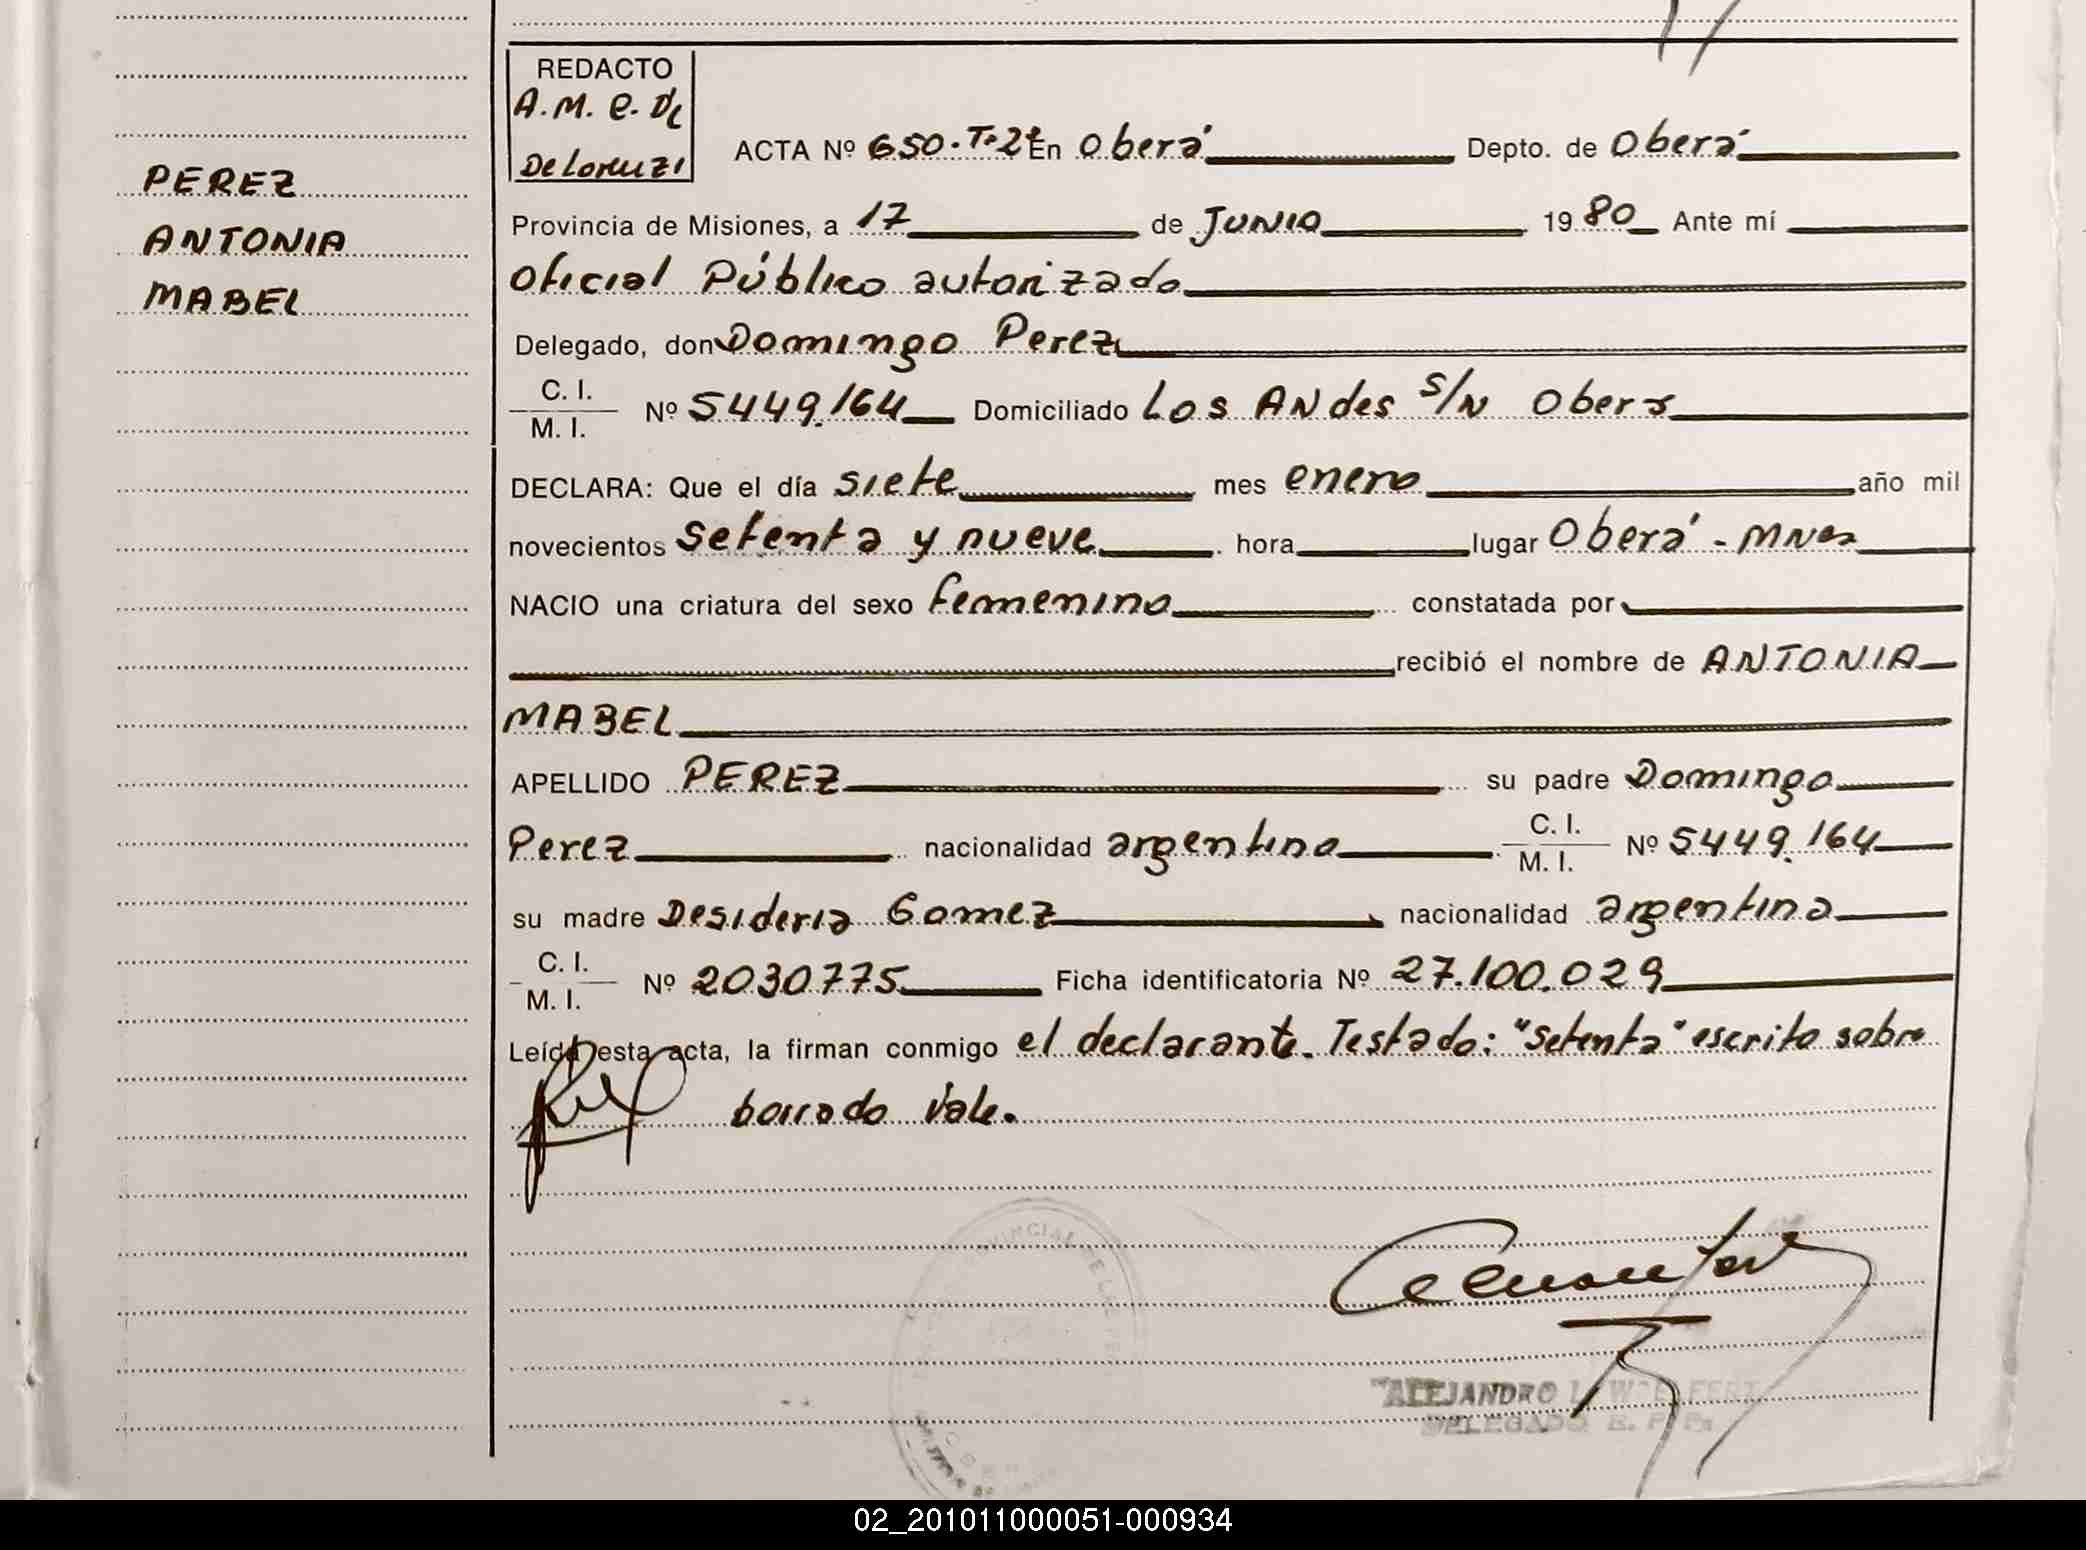 REDACTO
A. M. C. De
De Lorenzi
PEREZ
ANTONIA
MABEL
ACTA Nº 650. Tº 2º En Oberá Depto. de Oberá
Provincia de Misiones, a 17 de JUNIO 1980 Ante mí
Oficial Público autorizado
Delegado, don Domingo Perez
C. I.
M. I. Nº 5449.164 Domiciliado Los Andes S/N Oberá
DECLARA: Que el día siete mes enero año mil
novecientos setenta y nueve hora lugar Oberá - Mnes
NACIO una criatura del sexo femenino constatada por
recibió el nombre de ANTONIA
MABEL
APELLIDO PEREZ su padre Domingo
Perez nacionalidad argentina C. I. M. I. Nº 5449.164
su madre Desideria Gomez nacionalidad argentina
C. I.
M. I. Nº 2030775 Ficha identificatoria Nº 27.100.029
Leída esta acta, la firman conmigo el declarante. Testado: "Setenta" escrito sobre
borrado Vale.
ALEJANDRO
DELEGADO R. P. P.
02_201011000051-000934